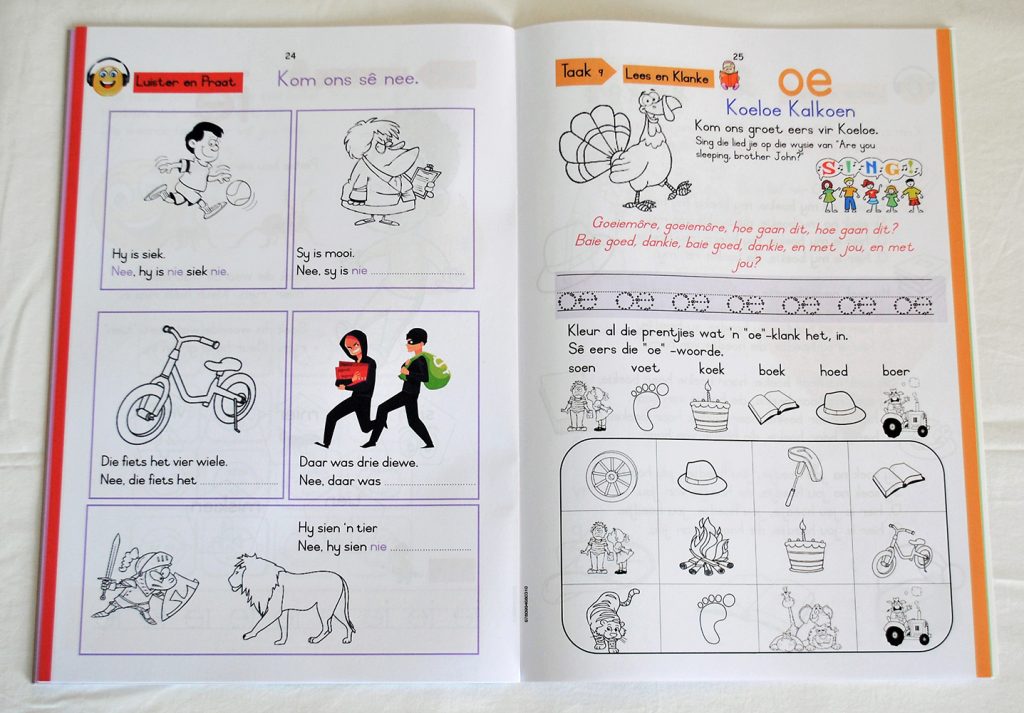 24
Luister en Praat
Kom ons sê nee.
Hy is siek.
Nee, hy is nie siek nie.
Sy is mooi.
Nee, sy is nie ..............................
Die fiets het vier wiele.
Nee, die fiets het ......................
Daar was drie diewe.
Nee, daar was ..........................
Hy sien 'n tier
Nee, hy sien nie ......................
25
Taak 9
Lees en Klanke
oe
Koeloe Kalkoen
Kom ons groet eers vir Koeloe.
Sing die lied jie op die wysie van "Are you
sleeping, brother John?"
SING!
Goeiemôre, goeiemôre, hoe gaan dit, hoe gaan dit?
Baie goed, dankie, baie goed, dankie, en met jou, en met
jou?
oe oe oe oe oe oe oe
Kleur al die prentjies wat 'n "oe"-klank het, in.
Sê eers die "oe" -woorde.
soen voet koek boek hoed boer